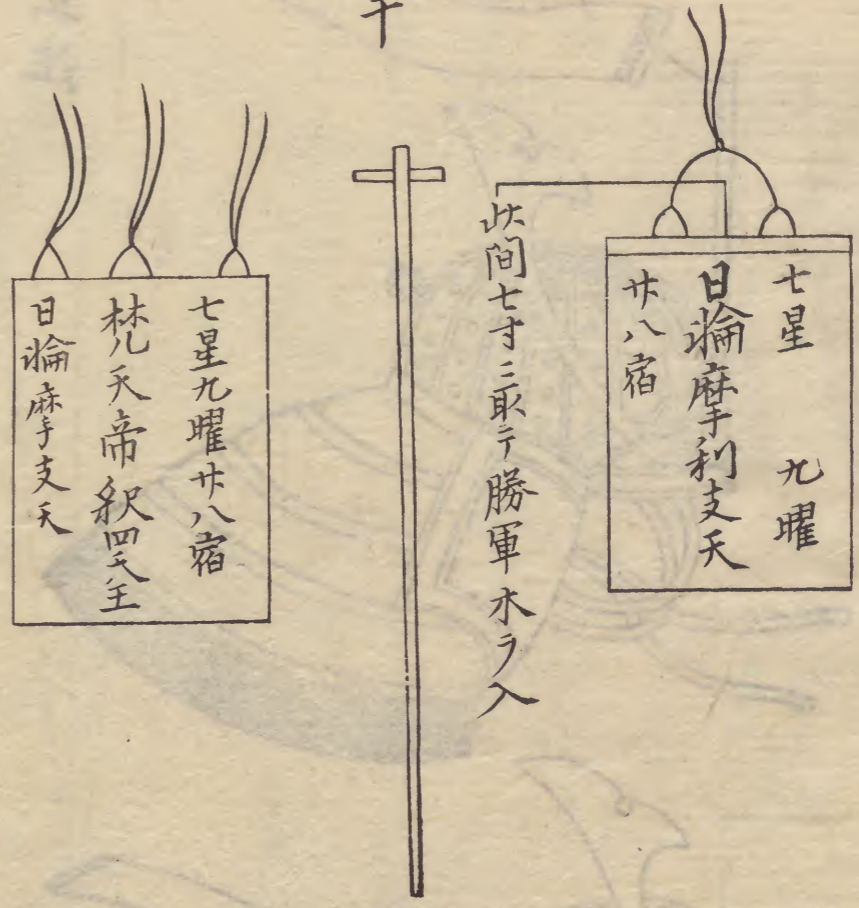 七星　九曜
日輪摩利支天
廿八宿
此間七寸ニ取テ勝軍木ヲ入
十
七星九曜廿八宿
梵天帝釈四天王
日輪摩支天